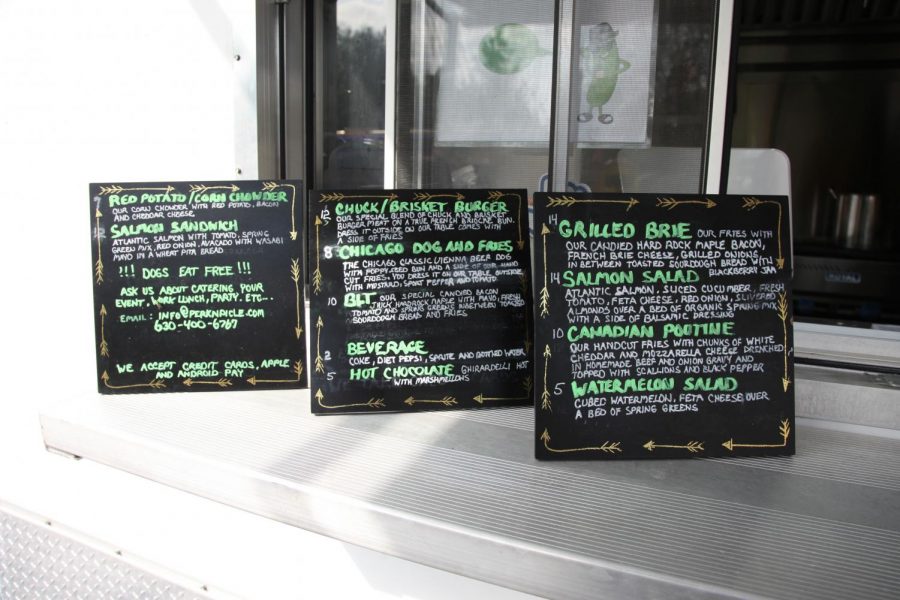 7 RED POTATO/CORN CHOWDER
OUR CORN CHOWDER WITH RED POTATO, BACON
AND CHEDDAR CHEESE
SALMON SANDWICH
ATLANTIC SALMON WITH TOMATO, SPRING
GREEN MIX, RED ONION, AVOCADO WITH WASABI
MAYO IN A WHEAT PITA BREAD
!!! DOGS EAT FREE !!!
ASK US ABOUT CATERING YOUR
EVENT, WORK LUNCH, PARTY, ETC...
EMAIL: INFO@PERKNPICLE.COM
630-400-6767
WE ACCEPT CREDIT CARDS, APPLE
AND ANDROID PAY
12 CHUCK/BRISKET BURGER
OUR SPECIAL BLEND OF CHUCK AND BRISKET
BURGER MEAT ON A TRUE FRENCH BRIOCHE BUN.
DRESS IT OUTSIDE ON OUR TABLE COMES WITH
A SIDE OF FRIES
8 CHICAGO DOG AND FRIES
THE CHICAGO CLASSIC VIENNA BEEF DOG
WITH POPPY SEED BUN AND A SIDE OF OUR HAND
CUT FRIES. YOU DRESS IT ON OUR TABLE OUTSIDE
WITH MUSTARD, SPORT PEPPER AND TOMATO
10 BLT OUR SPECIAL CANDIED BACON
THICK HARDROCK MAPLE WITH MAYO, FRESH
TOMATO AND SPRING GREENS INBETWEEN TOASTED
SOURDOUGH BREAD AND FRIES
2 BEVERAGE
COKE, DIET PEPSI, SPRITE AND BOTTLED WATER
5 HOT CHOCOLATE GHIRARDELLI HOT
WITH MARSHMELLOWS
14 GRILLED BRIE OUR FRIES WITH
OUR CANDIED HARD ROCK MAPLE BACON,
FRENCH BRIE CHEESE, GRILLED ONIONS
IN BETWEEN TOASTED SOURDOUGH BREAD WITH
BLACKBERRY JAM
14 SALMON SALAD
ATLANTIC SALMON, SLICED CUCUMBER, FRESH
TOMATO, FETA CHEESE, RED ONION, SLIVERED
ALMONDS OVER A BED OF ORGANIC SPRING MIX
WITH A SIDE OF BALSAMIC DRESSING
10 CANADIAN POUTINE
OUR HANDCUT FRIES WITH CHUNKS OF WHITE
CHEDDAR AND MOZZARELLA CHEESE DRENCHED
IN HOMEMADE BEEF AND ONION GRAVY AND
TOPPED WITH SCALLIONS AND BLACK PEPPER
5 WATERMELON SALAD
CUBED WATERMELON, FETA CHEESE OVER
A BED OF SPRING GREENS